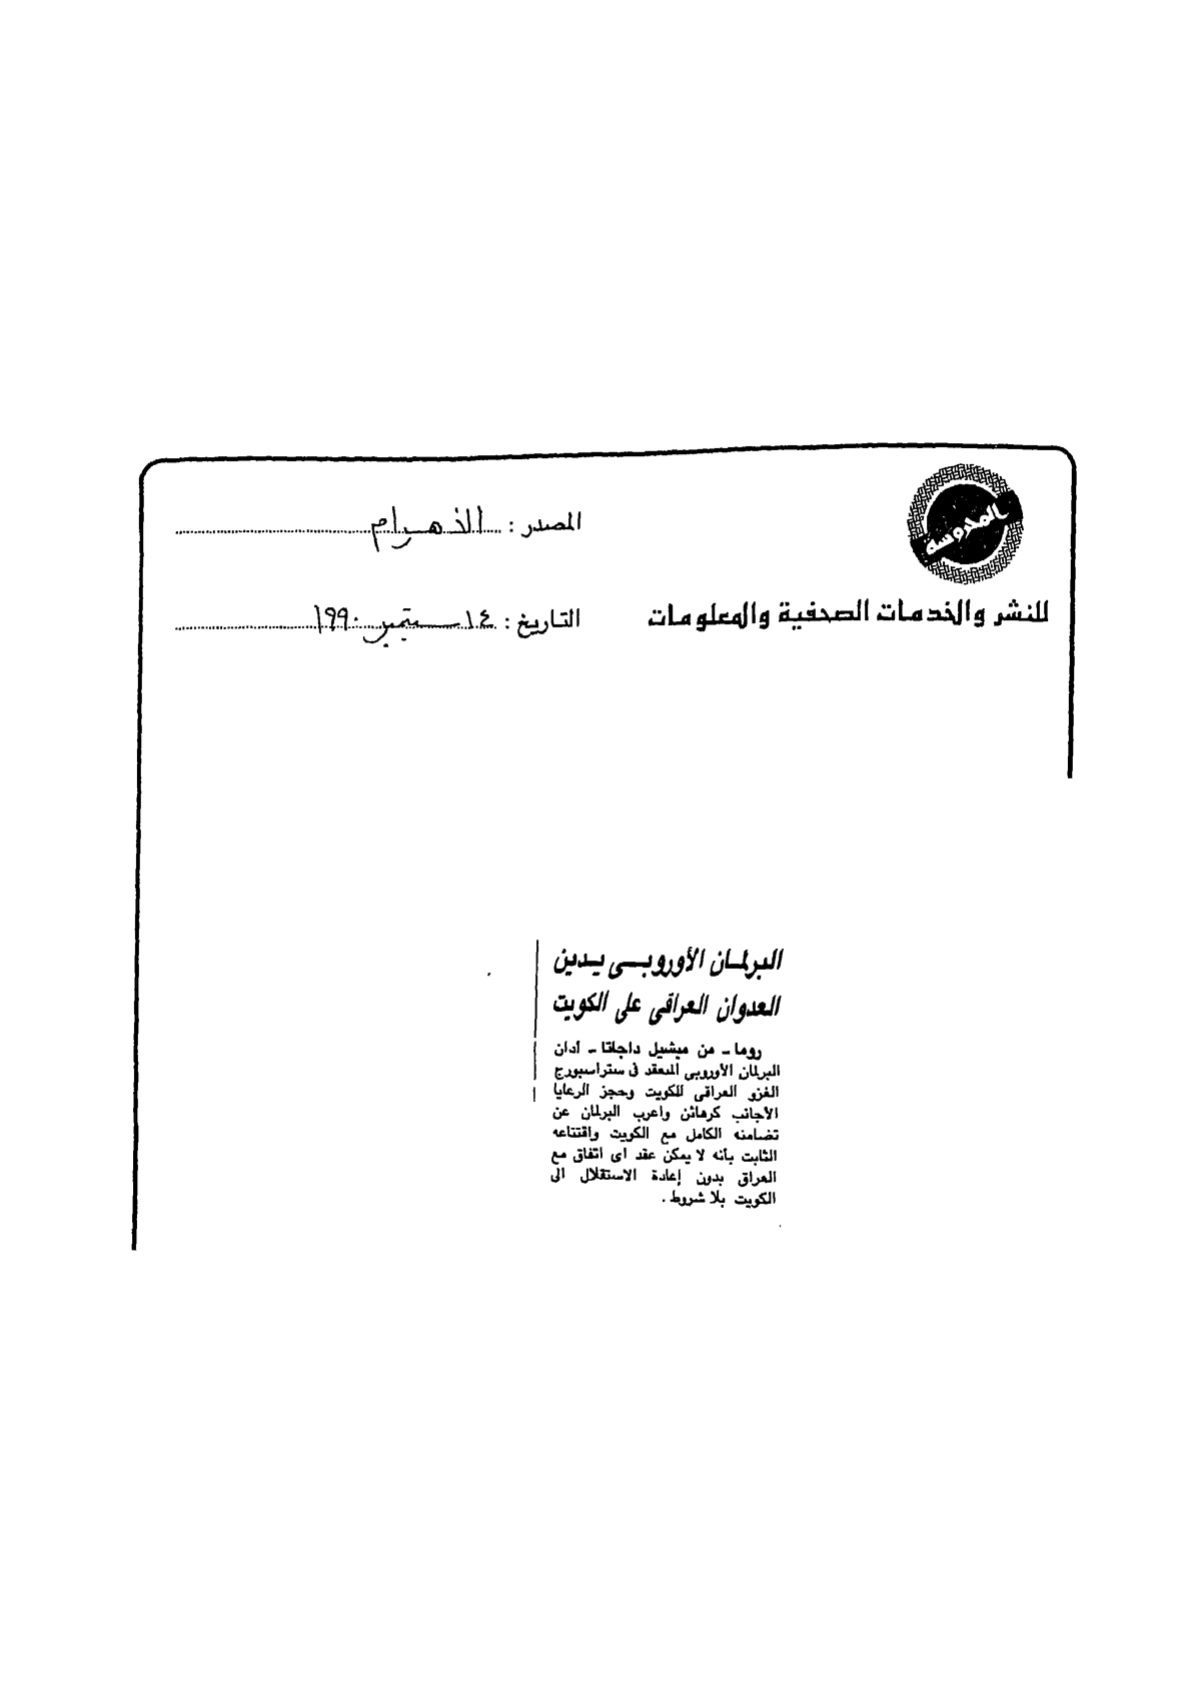 المحروسة
للنشر والخدمات الصحفية والمعلومات
المصدر : الأهرام
التاريخ : ١٤ سبتمبر ١٩٩٠
البرلمان الأوروبى يدين
العدوان العراقى على الكويت
روما ـ من ميشيل داجاتا ـ أدان
البرلمان الأوروبى المنعقد فى ستراسبورج
الغزو العراقى للكويت وحجز الرعايا
الأجانب كرهائن واعرب البرلمان عن
تضامنه الكامل مع الكويت واقتناعه
الثابت بأنه لا يمكن عقد اى اتفاق مع
العراق بدون إعادة الاستقلال الى
الكويت بلا شروط .